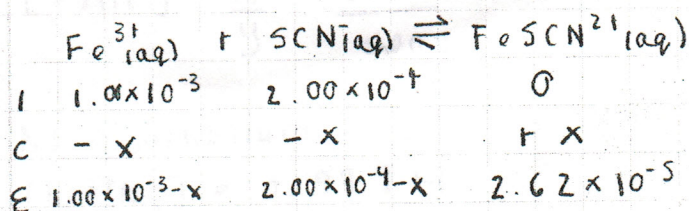 Fe³⁺(aq) + SCN⁻(aq) ⇌ FeSCN²⁺(aq)
I 1.00×10⁻³ 2.00×10⁻⁴ 0
C - x - x + x
E 1.00×10⁻³-x 2.00×10⁻⁴-x 2.62×10⁻⁵